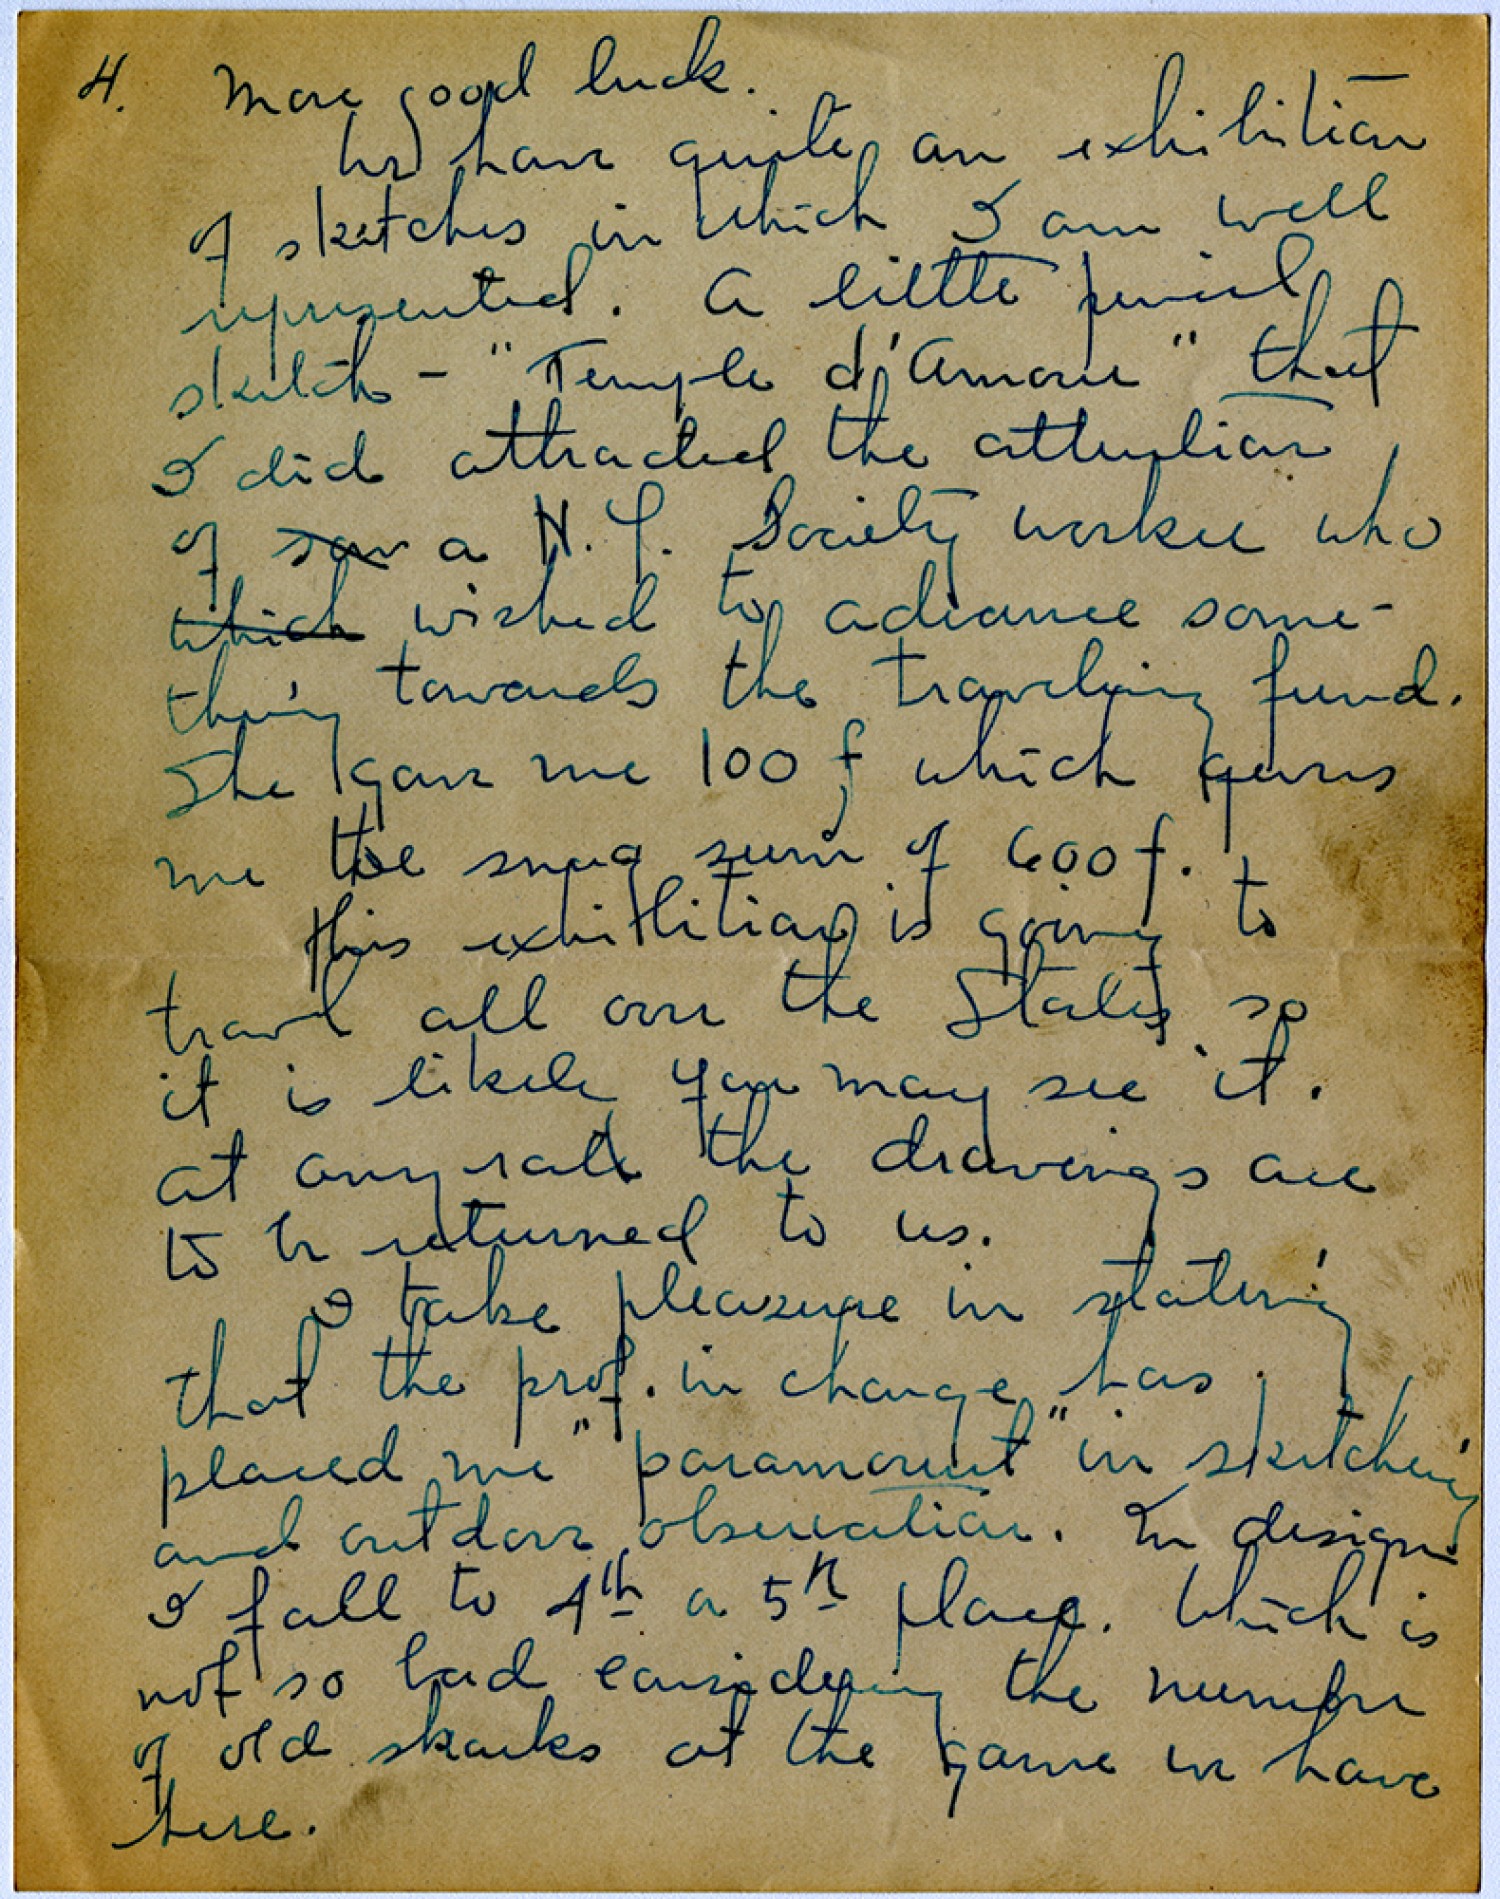 4. More good luck.
We have quite an exhibition
of sketches in which I am well
represented. A little pencil
sketch - "Temple d'Amour" that
I did attracted the attention
of som a N.Y. Society worker who
which wished to advance some-
thing towards the traveling fund.
She gave me 100 f which gives
me the snug sum of 600 f.
This exhibition is going to
travel all over the States so
it is likely you may see it.
At any rate the drawings are
to be returned to us.
I take pleasure in stating
that the prof. in charge has
placed me "paramount" in sketching
and outdoor observation. In design
I fall to 4th or 5th place. Which is
not so bad considering the number
of old sharks at the game we have
here.